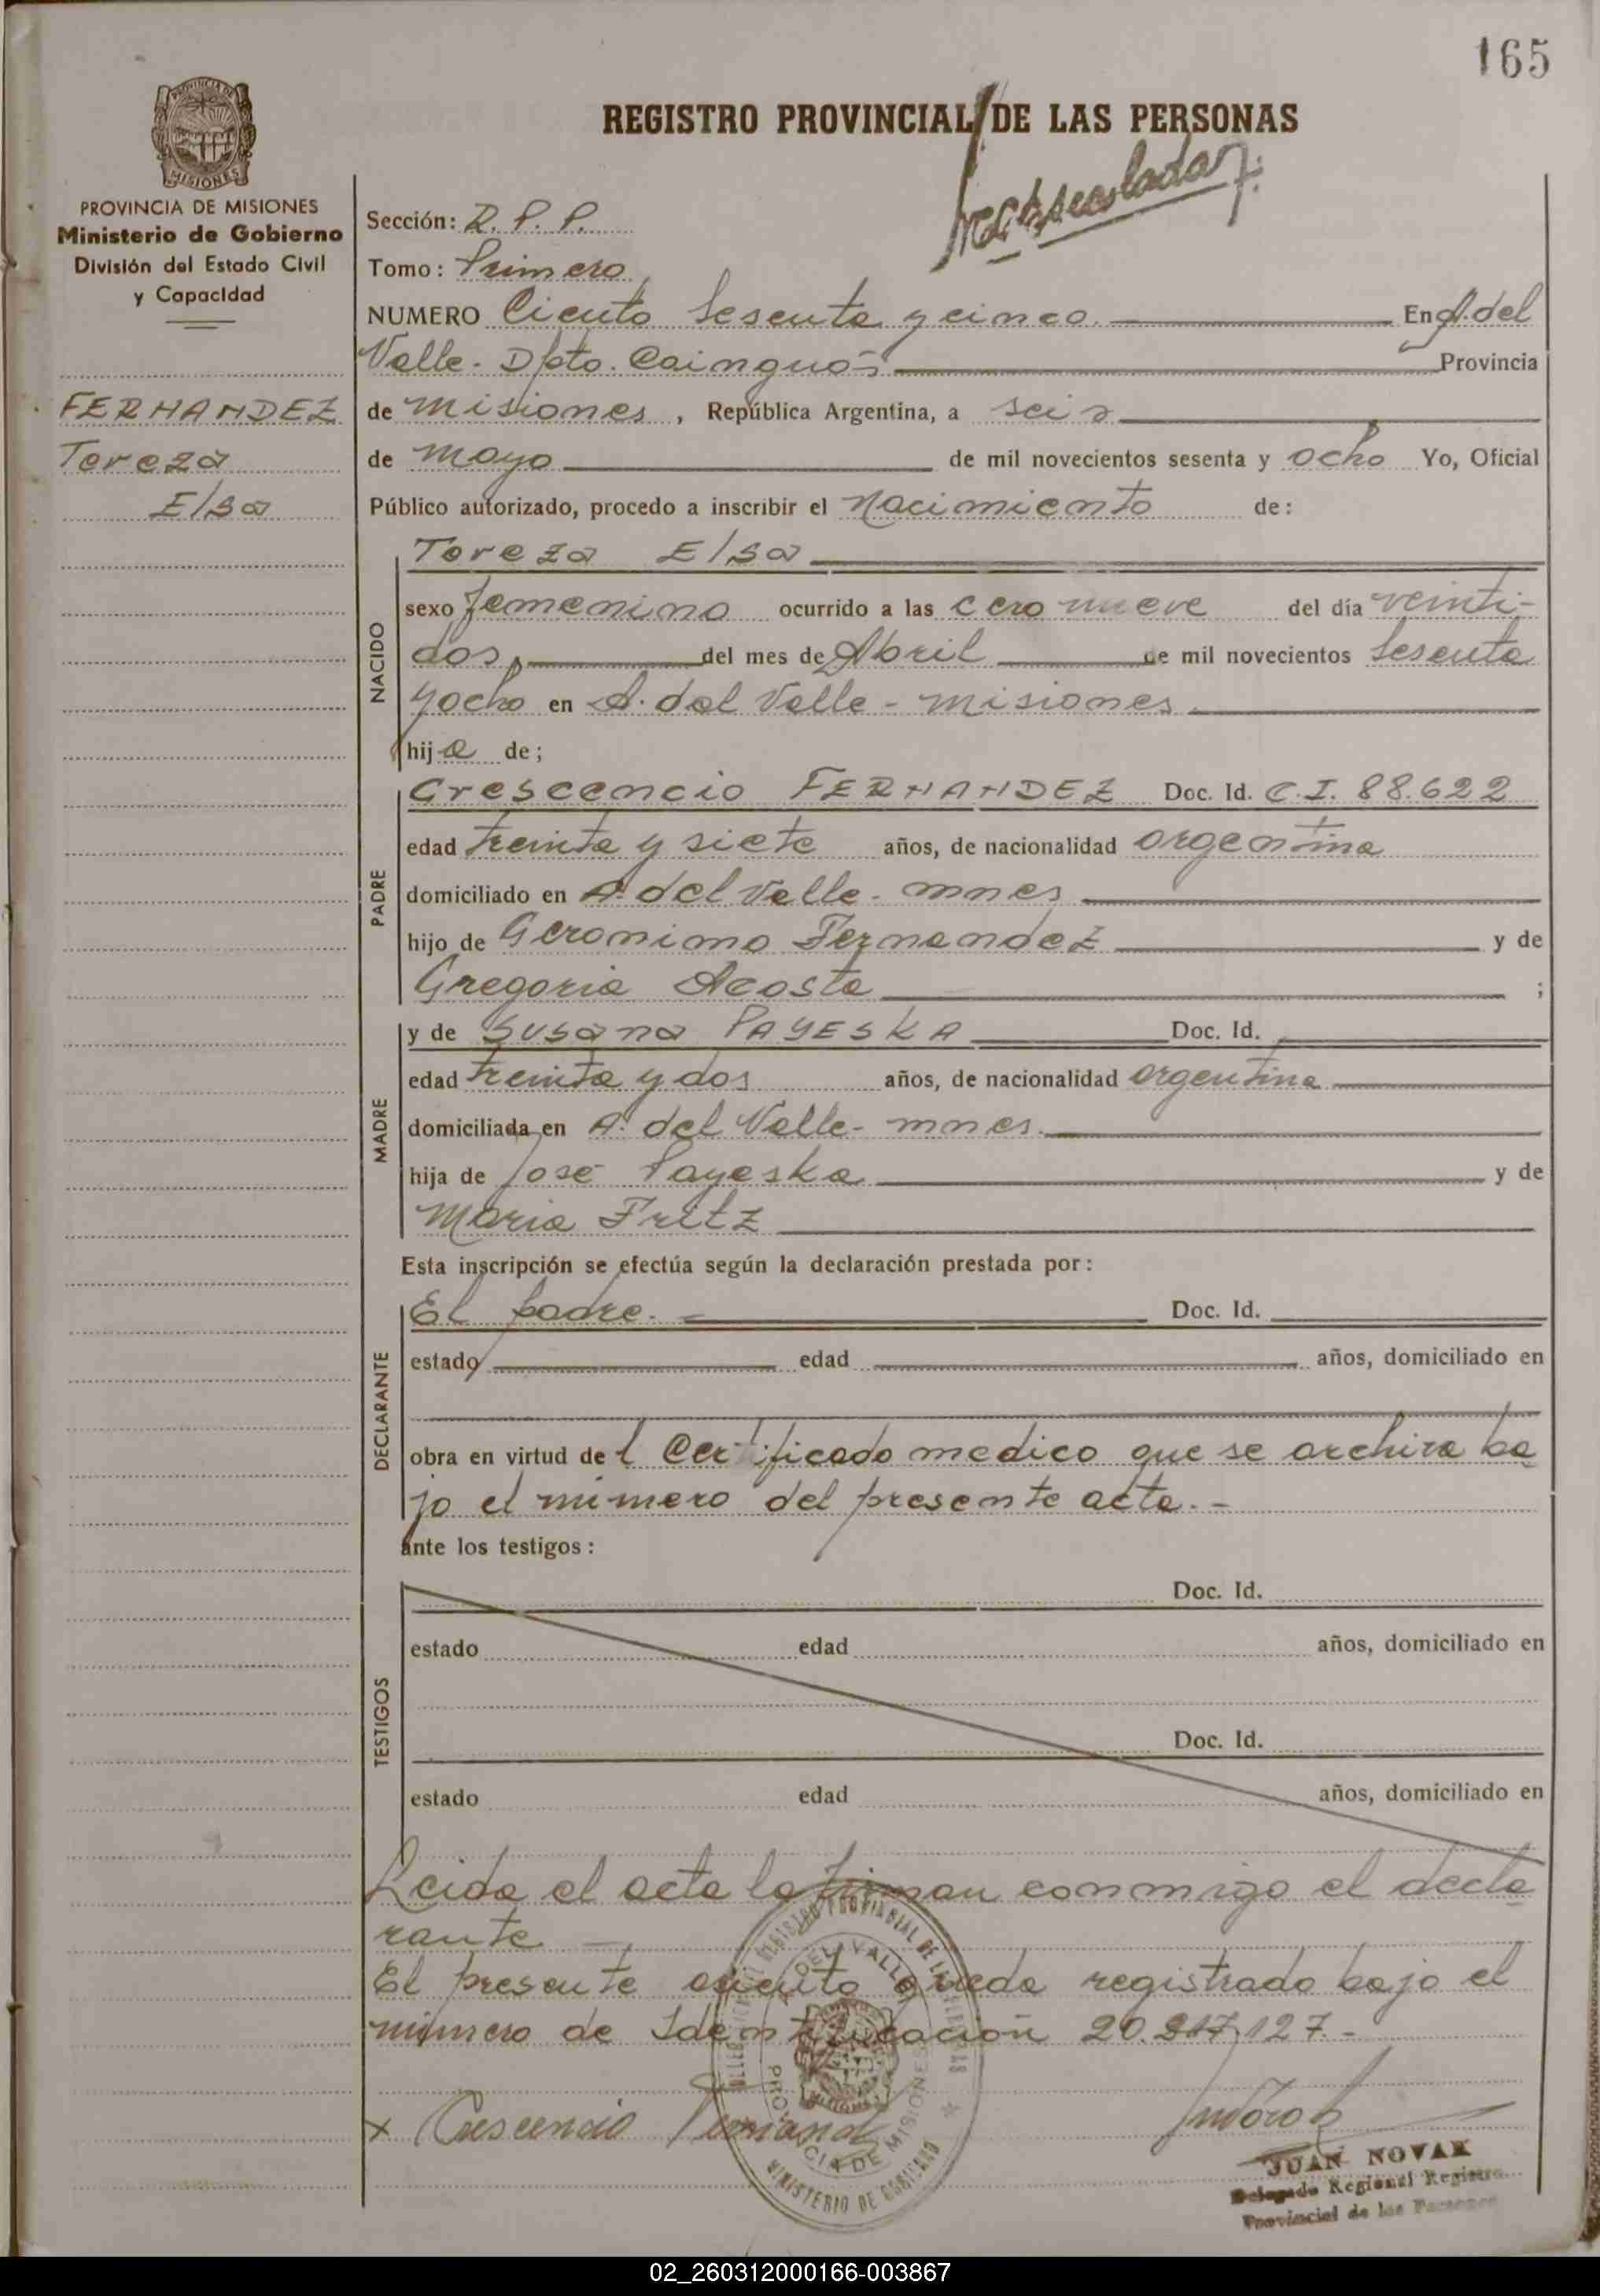 165
PROVINCIA DE
MISIONES
REGISTRO PROVINCIAL DE LAS PERSONAS
PROVINCIA DE MISIONES
Ministerio de Gobierno
División del Estado Civil
y Capacidad
FERNANDEZ
Tereza
Elsa
Sección: R. P. P.
Tomo: Primero
NUMERO Ciento Sesenta y cinco. En A. del
Valle. Dpto. Cainguás Provincia
de Misiones, República Argentina, a seis
de Mayo de mil novecientos sesenta y ocho Yo, Oficial
Público autorizado, procedo a inscribir el Nacimiento de:
NACIDO
Tereza Elsa
sexo femenino ocurrido a las cero nueve del día veinti-
dos, del mes de Abril de mil novecientos Sesenta
y ocho en A. del Valle - Misiones.
hija de;
PADRE
Crescencio FERNANDEZ Doc. Id. C.I. 88.622
edad treinta y siete años, de nacionalidad argentina
domiciliado en A. del Valle. Mnes
hijo de Geronimo Fernandez y de
Gregoria Acosta ;
MADRE
y de Susana PAYESKA Doc. Id.
edad treinta y dos años, de nacionalidad argentina
domiciliada en A. del Valle - Mnes.
hija de José Payeska y de
Maria Fritz
Esta inscripción se efectúa según la declaración prestada por:
DECLARANTE
El padre. Doc. Id.
estado edad años, domiciliado en
obra en virtud del Certificado medico que se archiva ba
jo el número del presente acta. -
ante los testigos:
TESTIGOS
Doc. Id.
estado edad años, domiciliado en
Doc. Id.
estado edad años, domiciliado en
Leida el acta la firman conmigo el decla
rante
El presente asiento queda registrado bajo el
número de Identificación 20.217.127.-
Crescencio Fernand
DEL VALLE
PROVINCIA DE MISIONES
MINISTERIO DE GOBIERNO
JUAN NOVAK
Delegado Regional Registro
Provincial de las Personas
02_260312000166-003867